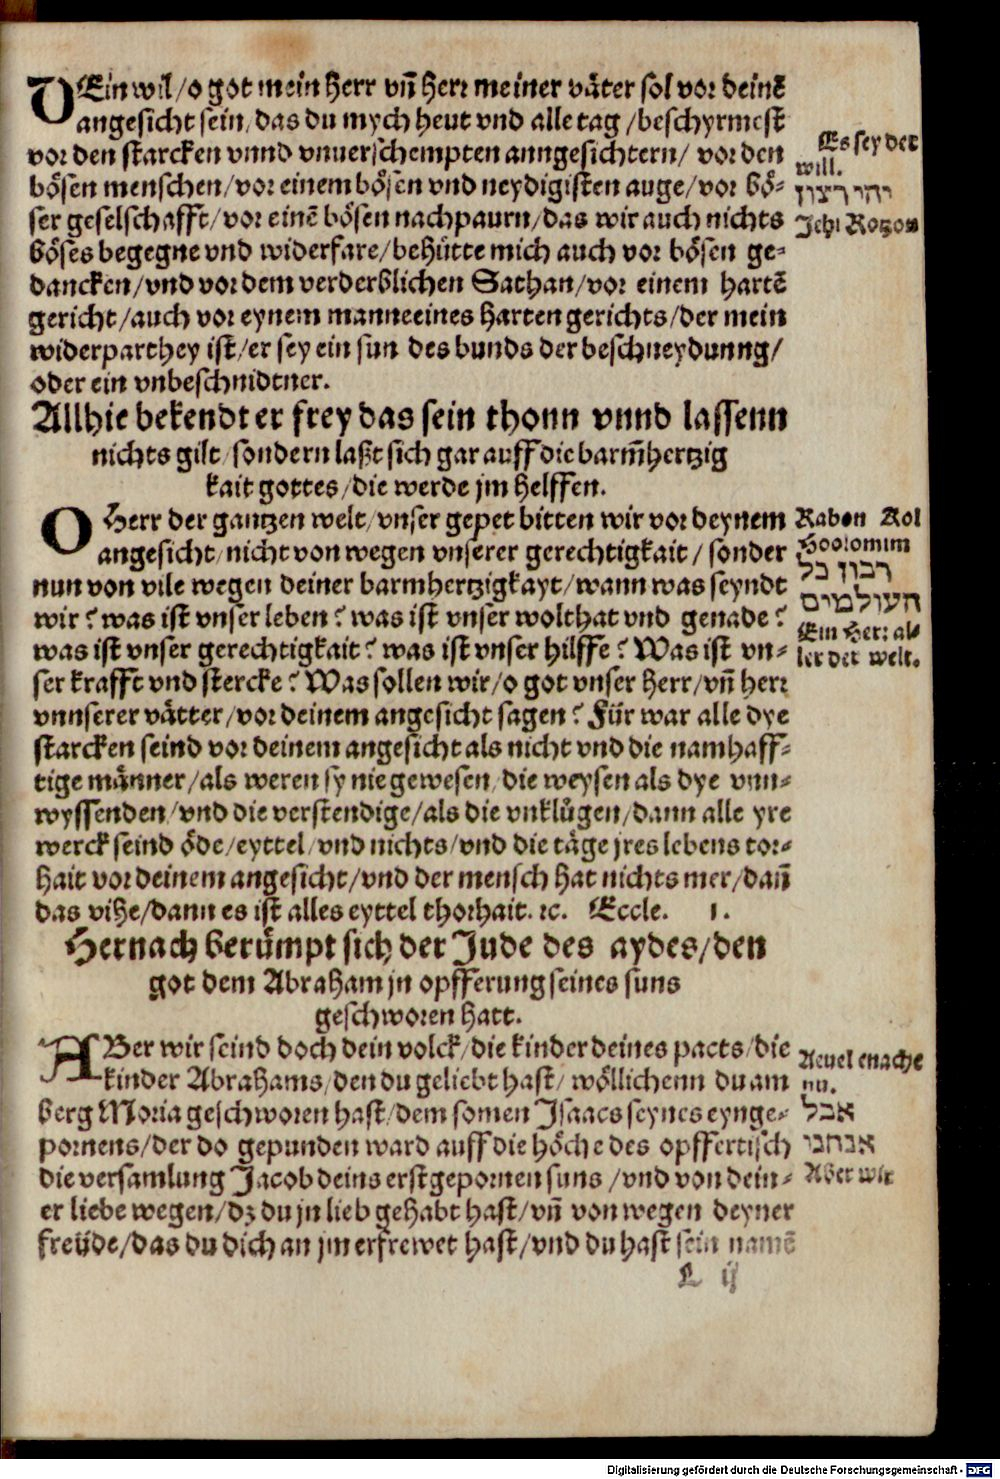 DEin wil/o got mein herr vñ herr meiner våter sol vor deinē
angesicht sein/das du mych heut vnd alle tag/beschyrmest
vor den starcken vnnd vnuerschempten anngesichtern/vor den
bösen menschen/vor einem bösen vnd neydigisten auge/vor bö-
ser geselschafft/vor einē bösen nachpaurn/das wir auch nichts
böses begegne vnd widerfare/behütte mich auch vor bösen ge-
dancken/vnd vor dem verderblichen Sathan/vor einem hartē
gericht/auch vor eynem manne eines harten gerichts/der mein
widerparthey ist/er sey ein sun des bunds der beschneydunng/
oder ein vnbeschnidtner.
Es sey der
will.
יהי רצון
Jehi Rozon
Allhie bekendt er frey das sein thonn vnnd lassenn
nichts gilt/sondern laßt sich gar auff die barm̃hertzig
kait gottes/die werde jm helffen.
O Herr der gantzen welt/vnser gepet bitten wir vor deynem
angesicht/nicht von wegen vnserer gerechtigkait/sonder
nun von vile wegen deiner barmhertzigkayt/wann was seyndt
wir? was ist vnser leben? was ist vnser wolthat vnd genade?
was ist vnser gerechtigkait? was ist vnser hilffe? Was ist vn-
ser krafft vnd stercke? Was sollen wir/o got vnser herr/vñ herr
vnnserer våtter/vor deinem angesicht sagen? Für war alle dye
starcken seind vor deinem angesicht als nicht vnd die namhaff-
tige månner/als weren sy nie gewesen/die weysen als dye vnn-
wyssenden/vnd die verstendige/als die vnklůgen/dann alle yre
werck seind öde/eyttel/vnd nichts/vnd die täge jres lebens tor-
hait vor deinem angesicht/vnd der mensch hat nichts mer/dañ
das vihe/dann es ist alles eyttel thorhait. ꝛc. Eccle. 1.
Rabon Kol
Hoolomim
רבון כל
העולמים
Ein Herr al-
ler der welt.
Hernach berůmpt sich der Jude des aydes/den
got dem Abraham jn opfferung seines suns
geschworen hatt.
ABer wir seind doch dein volck/die kinder deines pacts/die
kinder Abrahams/den du geliebt hast/wöllichenn du am
berg Moria geschworen hast/dem somen Isaacs seynes eynge-
pornens/der do gepunden ward auff die höche des opffertisch
die versamlung Jacob deins erstgepornen suns/vnd von dein-
er liebe wegen/dz du jn lieb gehabt hast/vñ von wegen deyner
freüde/das du dich an jm erfrewet hast/vnd du hast sein namē
Auel enache
nu.
אבל
אנחנו
Aber wir
L ij
Digitalisierung gefördert durch die Deutsche Forschungsgemeinschaft - DFG